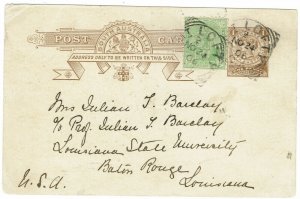 SOUTH AUSTRALIA
POST CARD
ADDRESS ONLY TO BE WRITTEN ON THIS SIDE.
Mrs Julian T. Barclay
c/o Prof Julian T. Barclay
Louisiana State University
Baton Rouge
U.S.A. Louisiana